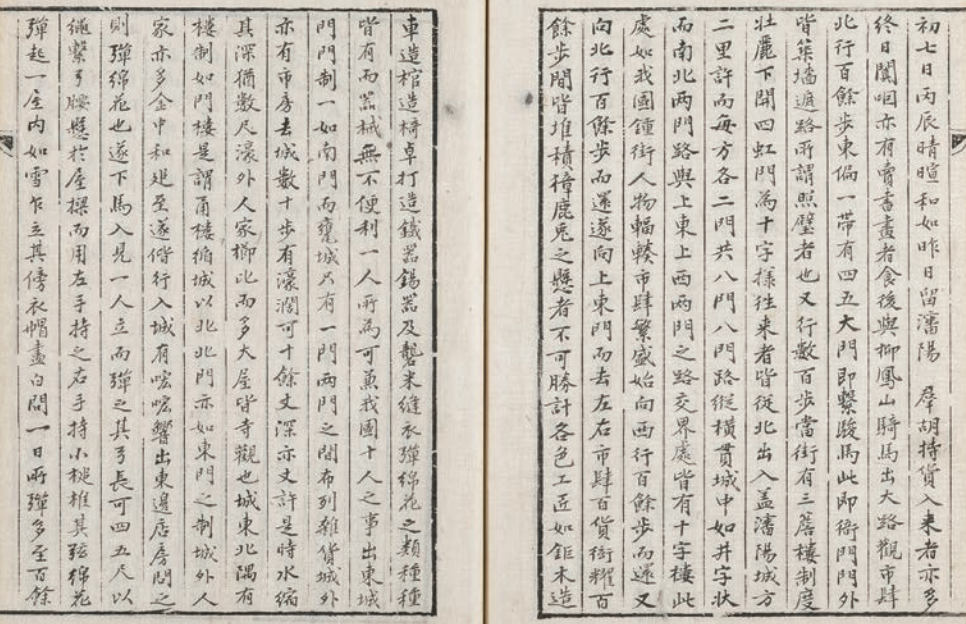 初七日丙辰晴暄和如昨日留瀋陽 羣胡持貨入來者亦多
終日闐咽亦有賣書畫者食後與柳鳳山騎馬出大路觀市肆
北行百餘步東偏一帶有四五大門即繫駿馬此即衙門門外
皆築墻遮路所謂照壁者也又行數百步當街有三簷樓制度
壯麗下開四虹門為十字樣徃來者皆從北出入盖瀋陽城方
二里許而每方各二門共八門八門路縱橫貫城中如井字狀
而南北兩門路與上東上西兩門之路交界處皆有十字樓此
處如我國鍾街人物輻輳市肆繁盛始向西行百餘步而還又
向北行百餘步而還遂向上東門而去左右市肆百貨衒耀百
餘步間皆堆積獐鹿兎之懸者不可勝計各色工匠如鉅木造
車造棺造椅卓打造鐵器錫器及礱米縫衣彈綿花之類種種
皆有而器械無不便利一人所為可兼我國十人之事出東城
門門制一如南門而甕城只有一門兩門之間布列雜貨城外
亦有市房去城數十步有濠濶可十餘丈深亦丈許是時水縮
其深猶數尺濠外人家櫛比而多大屋皆寺觀也城東北隅有
樓制如門樓是謂甬樓循城以北北門亦如東門之制城外人
家亦多金中和追至遂偕行入城有嗃嗃響出東邊店房問之
則彈綿花也遂下馬入見一人立而彈之其弓長可四五尺以
繩繫弓腰懸於屋樑而用左手持之右手持小槌椎其弦綿花
彈起一屋內如雪乍立其傍衣帽盡白問一日所彈多至百餘